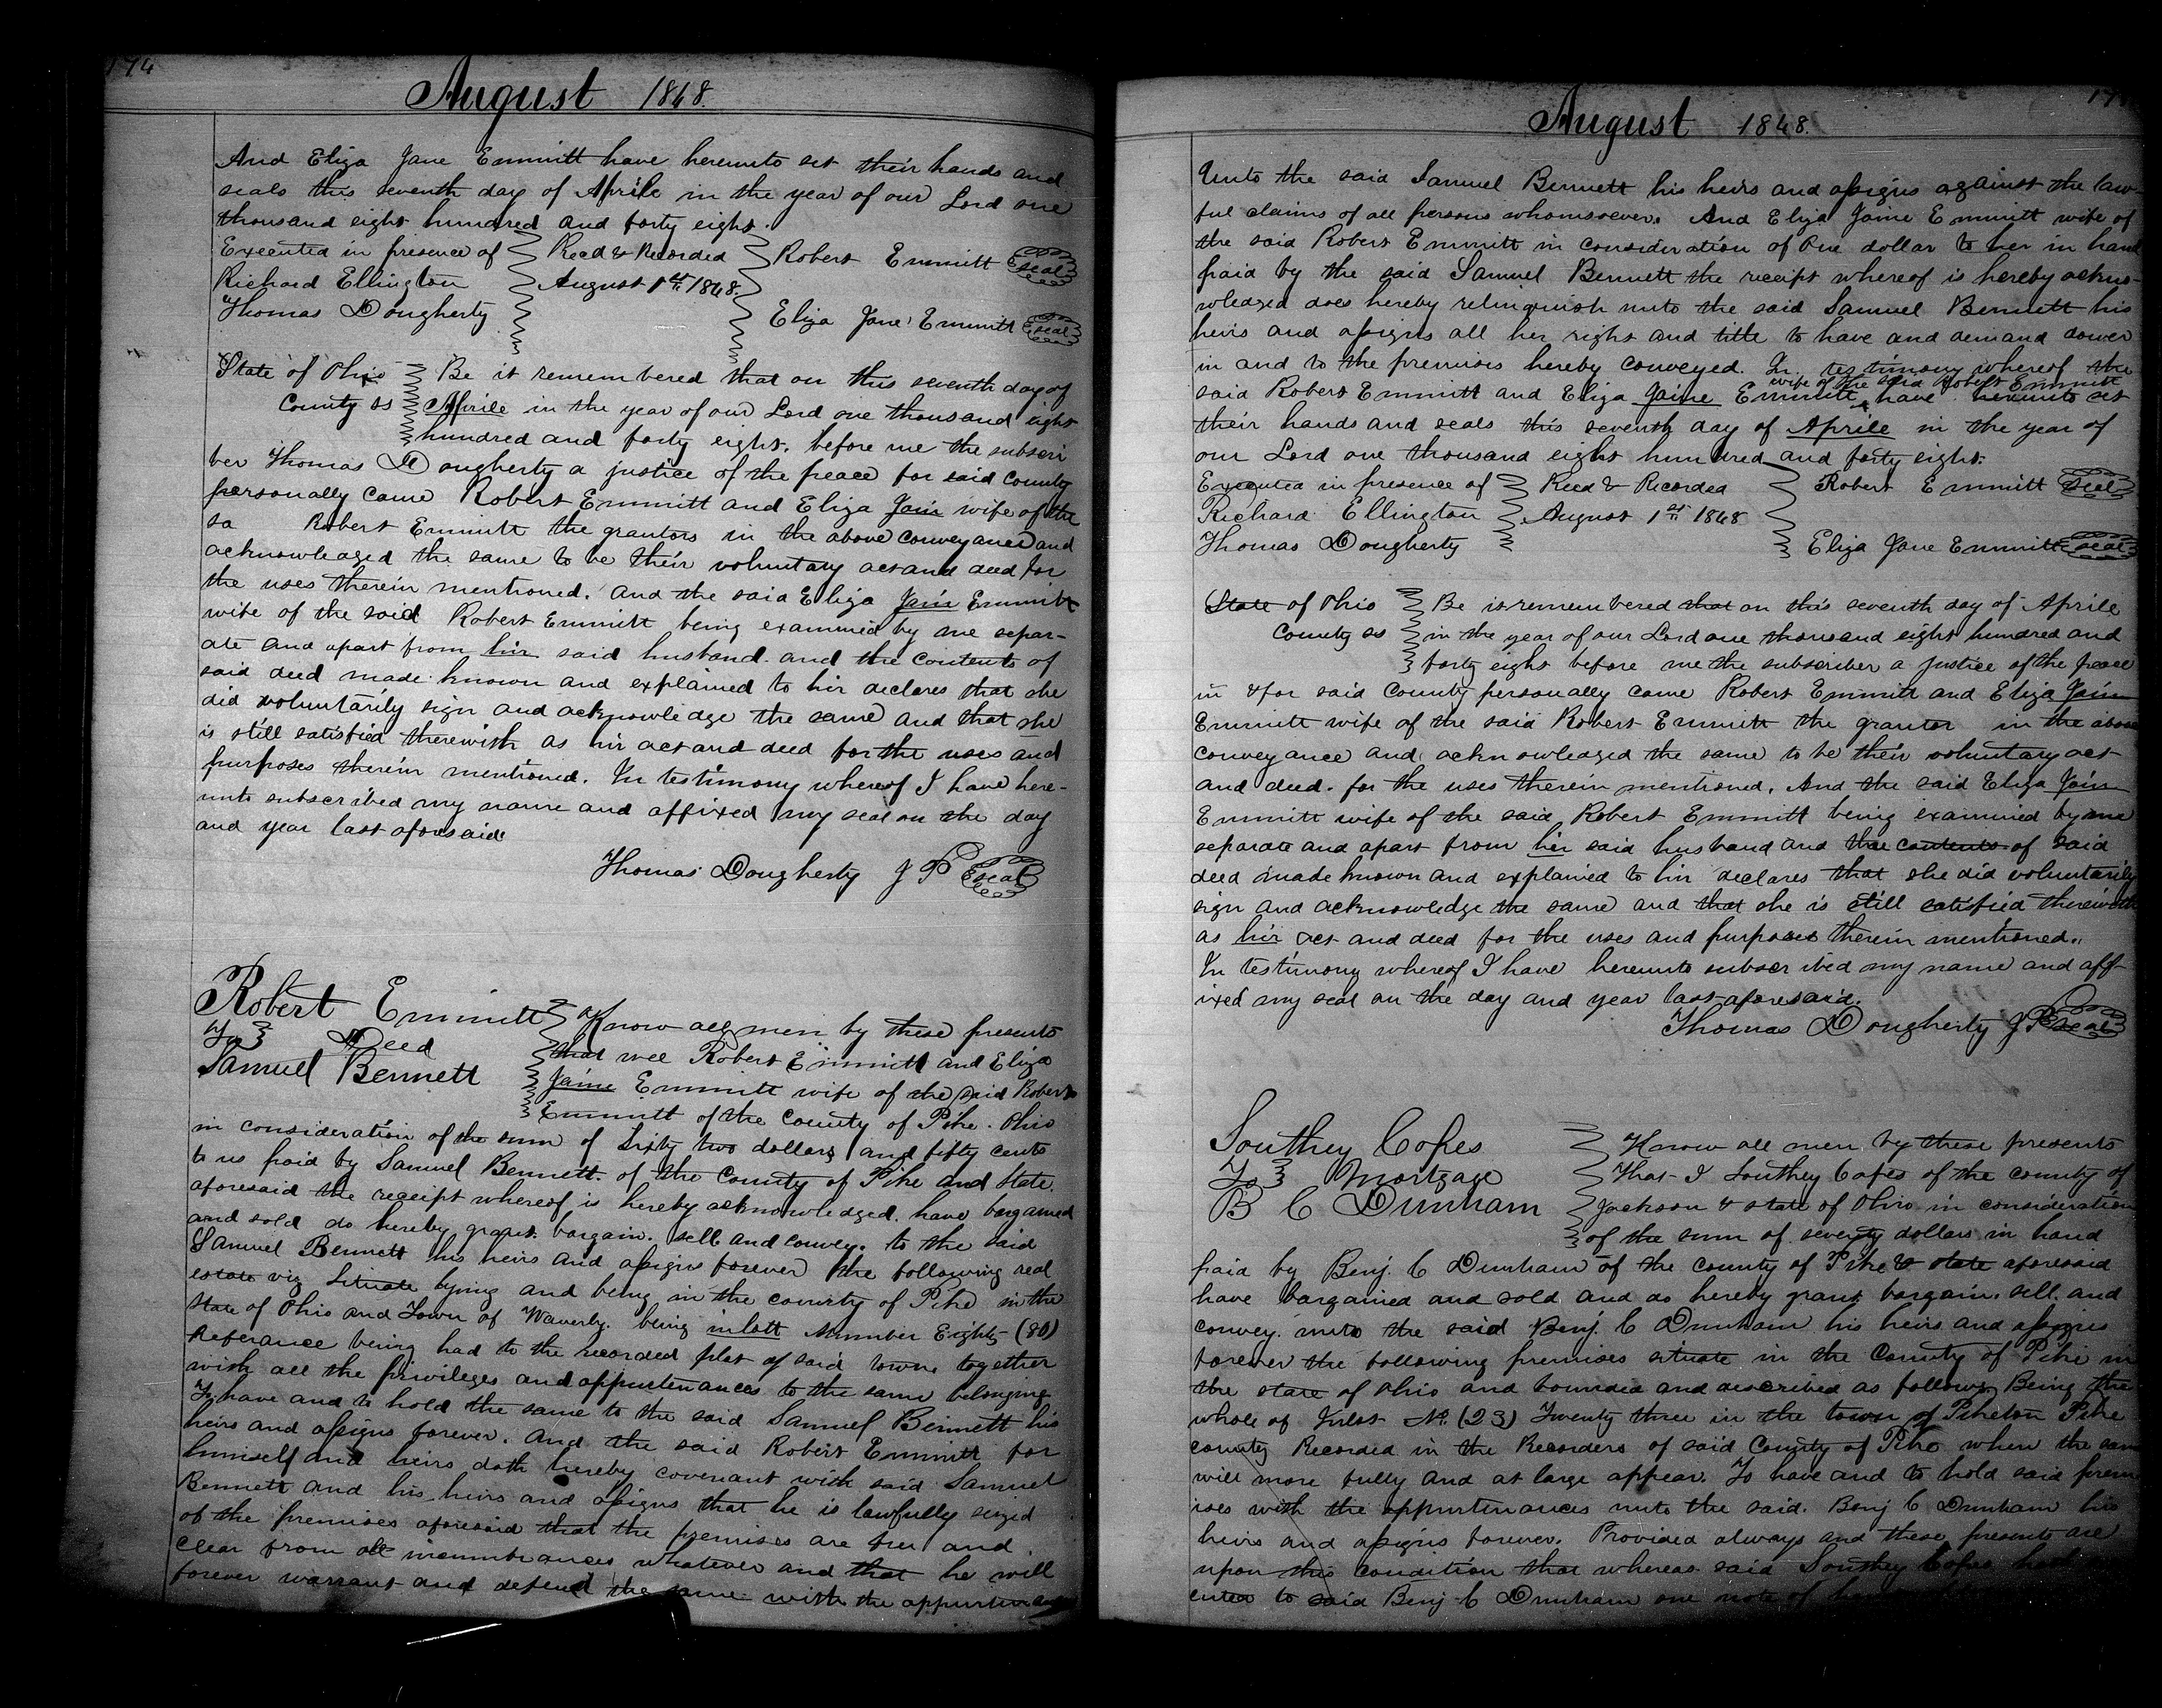 174
August 1848.
And Eliza Jane Emmitt have hereunto set their hands and
seals this seventh day of Aprile in the year of our Lord one
thousand eight hundred and forty eight.
Executed in presence of
Richard Ellington
Thomas Dougherty
Recd & Recorded
August 1st 1848.
Robert Emmitt seal
Eliza Jane Emmitt seal
State of Ohio
County ss
Be it remembered that on this seventh day of
Aprile in the year of our Lord one thousand eight
hundred and forty eight. before me the subscri
ber Thomas Dougherty a justice of the peace for said County
personally came Robert Emmitt and Eliza Jain wife of the
sa Robert Emmitt the grantors in the above conveyance and
acknowledged the same to be their voluntary act and deed for
the uses therein mentioned. and the said Eliza Jain Emmitt
wife of the said Robert Emmitt being examined by me separ-
ate and apart from hir said husband. and the contents of
said deed made known and explained to hir declares that she
did voluntarily sign and acknowledge the same and that she
is still satisfied therewith as hir act and deed for the uses and
purposes therein mentioned. In testimony whereof I have here-
unto subscribed my name and affixed my seal on the day
and year last aforesaid
Thomas Dougherty J P seal
Robert Emmitt
To Deed
Samuel Bennett
Know all men by these presents
that wee Robert Emmitt and Eliza
Jaine Emmitt wife of the said Robert
Emmitt of the County of Pike. Ohio
in consideration of the sum of Sixty two dollars and fifty cents
to us paid by Samuel Bennett. of the County of Pike and State.
aforesaid the receipt whereof is hereby acknowledged. have bargained
and sold do hereby grant. bargain. sell and convey. to the said
Samuel Bennett his heirs and assigns forever the following real
estate viz Situate lying and being in the county of Pike in the
State of Ohio and Town of Waverly. being inlott Number Eighty (80)
Referance being had to the recorded plat of said town. together
with all the privileges and appurtenances to the same belonging
To have and to hold the same to the said Samuel Bennett his
heirs and assigns forever. And the said Robert Emmitt for
himself and heirs doth hereby covenant with said Samuel
Bennett and his heirs and assigns that he is lawfully seized
of the premises aforesaid that the premises are free and
clear from all incumbrances whatever and that he will
forever warrant and defend the same with the appurtenances
August 1848.
Unto the said Samuel Bennett his heirs and assigns against the law-
ful claims of all persons whomsoever. And Eliza Jaine Emmitt wife of
the said Robert Emmitt in consideration of One dollar to her in hand
paid by the said Samuel Bennett the receipt whereof is hereby ackno-
wledged does hereby relinquish unto the said Samuel Bennett his
heirs and assigns all her right and title to have and demand dower
in and to the premises hereby conveyed. In testimony whereof the
wife of the said Robert Emmitt
said Robert Emmitt and Eliza Jaine Emmitt have hereunto set
their hands and seals this seventh day of Aprile in the year of
our Lord one thousand eight hundred and forty eight.
Executed in presence of
Richard Ellington
Thomas Dougherty
Recd & Recorded
August 1st 1848
Robert Emmitt seal
Eliza Jane Emmitt seal
State of Ohio
County ss
Be it remembered that on this seventh day of Aprile
in the year of our Lord one thousand eight hundred and
forty eight before me the subscriber a justice of the peace
in & for said County personally came Robert Emmitt and Eliza Jain
Emmitt wife of the said Robert Emmitt the grantor in the above
conveyance and acknowledged the same to be their voluntary act
and deed. for the uses therein mentioned. And the said Eliza Jain
Emmitt wife of the said Robert Emmitt being examined by me
separate and apart from hir said husband and the contents of said
deed made known and explained to hir declares that she did voluntarily
sign and acknowledge the same and that she is still satisfied therewith
as hir act and deed for the uses and purposes therein mentioned.
In testimony whereof I have hereunto subscribed my name and aff-
ixed my seal on the day and year last aforesaid.
Thomas Dougherty J P seal
Southey Copes
To Mortgage
B C Dunham
Know all men by these presents
That I Southey Copes of the county of
Jackson & state of Ohio in consideration
of the sum of seventy dollars in hand
paid by Benj. C Dunham of the county of Pike & state aforesaid
have bargained and sold and do hereby grant bargain. sell and
convey. unto the said Benj. C Dunham his heirs and assigns
forever the following premises situate in the County of Pike in
the state of Ohio and bounded and described as follows, Being the
whole of Inlot No. (23) Twenty three in the town of Piketon Pike
county Recorded in the Recorders of said County of Pike where the same
will more fully and at large appear. To have and to hold said prem
ises with the appurtenances unto the said. Benj C Dunham his
heirs and assigns forever. Provided always and these presents are
upon this condition that whereas said Southey Copes hath
cuted to said Benj C Dunham one note of